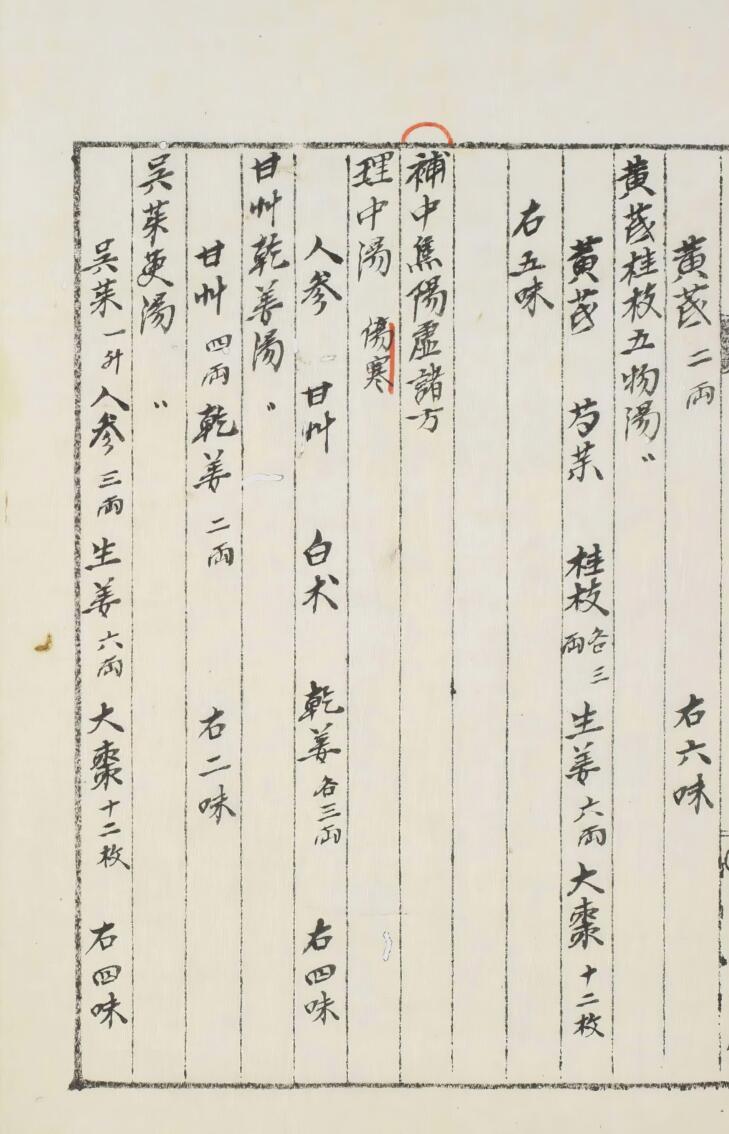 黄芪二両　右六味
黄芪桂枝五物湯〃
黄芪　芍薬　桂枝各三両　生姜六両　大棗十二枚
右五味
補中焦陽虚諸方
理中湯　傷寒
人参　甘艸　白朮　乾姜各三両　右四味
甘艸乾姜湯〃
甘艸四両　乾姜二両　右二味
呉茱萸湯〃
呉茱一升　人参三両　生姜六両　大棗十二枚　右四味